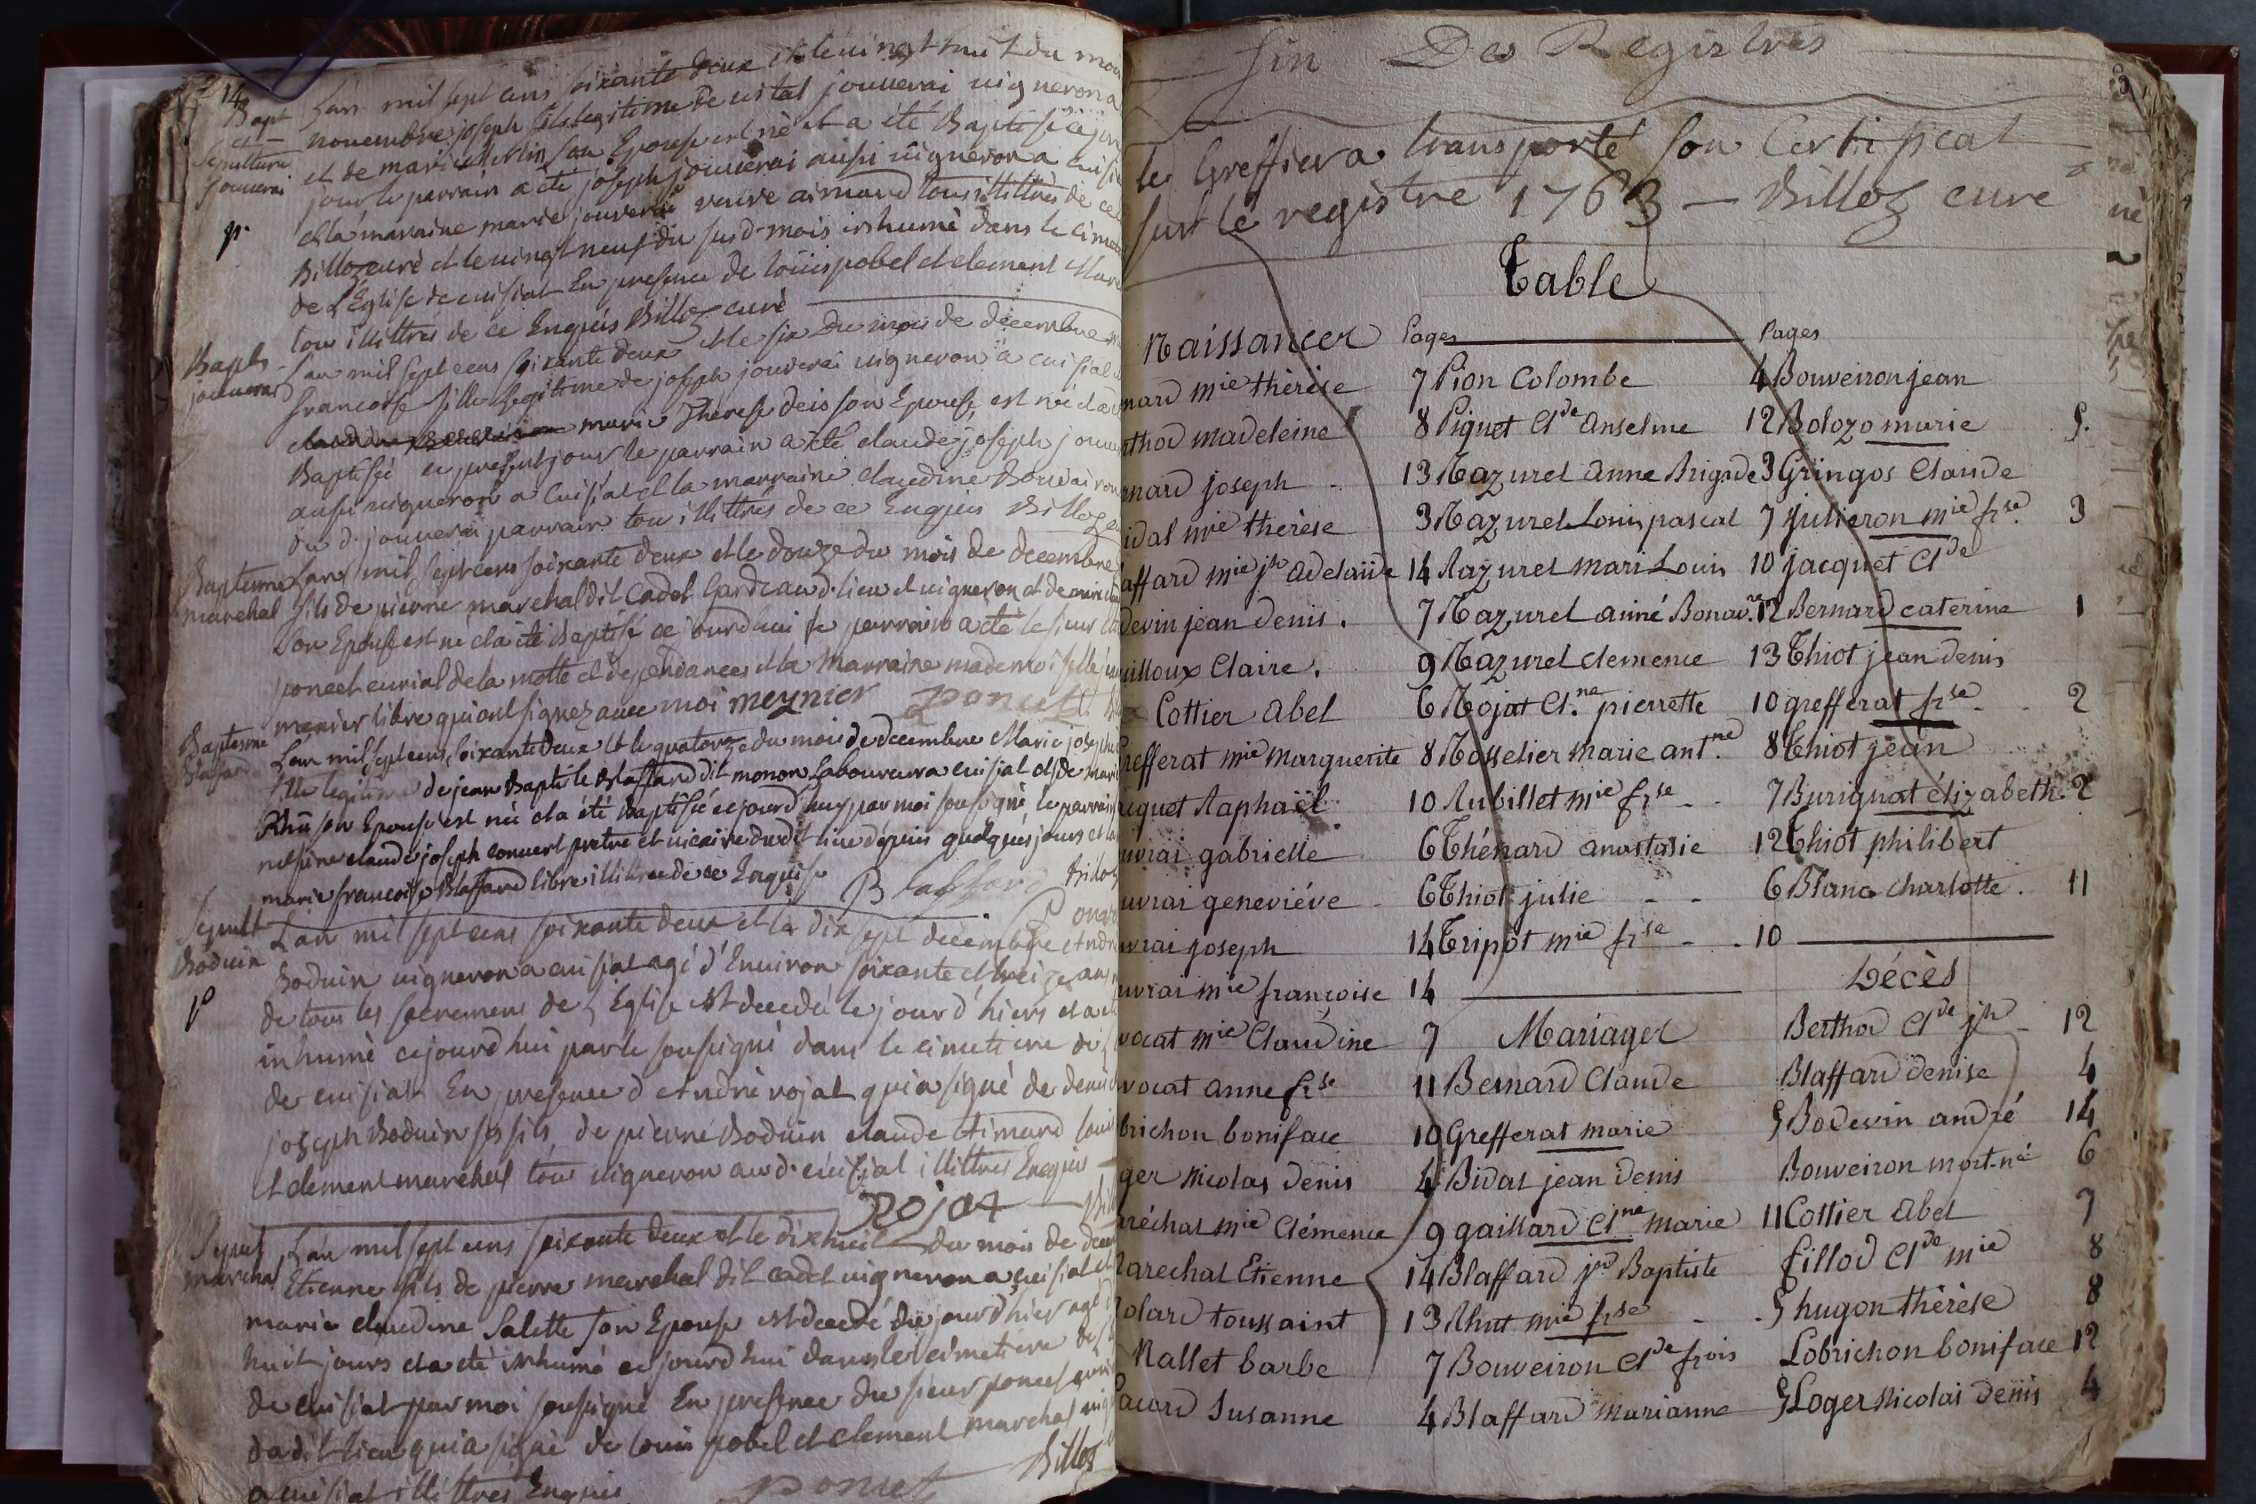 14
Bapt
et
Sepulture
jouuerai
p.
Lan mil sept cens soixante deux et le uingt huit du moi
nouembre joseph fils legitime de uital jouuerai uigneron a
et de marie son Epouse est né et a été Baptisé ce jour
jour le parrain a été joseph jouuerai aussi uigneron a cuisia
et la maraine marie jouuerai veuve aimard tous illittrés de ce
Billoz curé et le uingt neuf du susd. mois inhumé dans le cimet
de l'Eglise de cuisiat En presence de loüis pobel et clement Mare
tous illittrés de ce Enquis Billoz curé
Bapts
jouuerai
Lan mil sept cens soixante deux et le six Du mois de decembre
francoise fille legitime de joseph jouverai uigneron a cuisiat
marie Therese deis son Epouse est née et a
Baptisée ce present jour le parrain a été claude joseph jouue
aussi uigneron a Cuisiat et la marraine claudine Bouvairon
du d. jouuerai parrain tous illittrés de ce Enquis Billoz
Bapteme
marechal
Lan mil sept cens soixante deux et le douze du mois de decembre
fils de pierre marechal dit Cadet Garde aud. lieu et uigneron et de marie
son Epouse est né et a été Baptisé ce jourdhui le parrain a été le sieur
poncet curial de la motte et dependances et la Marraine mademoiselle
meynier libre qui ont signez auec moi meynier poncet
Baptesme
Blaffard
Lan mil sept cens soixante deux et le quatorze du mois de decembre Marie joseph
fille legitime de jean Baptiste Blaffard dit monon Laboureur a cuisiat et de marie
Rhü son Epouse est née et a été Baptisée ce jourd'huy par moi soussigné le parrain
messire claude joseph conuert pretre et uicaire dudit lieu depuis quelques jours et la
marie francoise Blaffard libre illittrée de ce Enquise B laffard Billoz
Sepult
Boduin
po
Lan mil sept cens soixante deux et le dix sept decembre Andre
Boduin uigneron a cuisiat agé d'Enuiron soixante et treize ans
de tous les sacremens de L Eglise est decedé le jour d'hiers et a été
inhumé ce jourd'hui par le soussigné dans le cimetiere de
de cuisiat En presence d André rojat qui a signé de denis
joseph Boduin ses fils, de pierre Boduin claude Aimard louis
et clement marechal tous uigneron aud. cuisiat illittres Enquis
Rojat
Sepult
marechal
Lan mil sept cens soixante deux et le dixhuit du mois de decem
Etienne fils de pierre marechal dit cadet uigneron a cuisiat et
marie claudine Salette son Epouse est decedé du jourd'hier agé
huit jours et a été inhumé ce jourd hui dans le cimetiere de
de cuisiat par moi soussigné En presence du sieur poncet curial
dudit lieu qui a signé de louis pobel et clement marechal uig
a cuisiat illittres Enquis poncet Billoz
fin Des Registres
le Greffier a transporté son Certificat
sur le registre 1763 — Billoz curé
Table
Naissances Pages Pages
nard mie thérèse 7 Pion Colombe 4 Bouveiron jean
rthod madeleine 8 Piquet Clde Anselme 12 Bolozo marie 5.
rnard joseph 13 Razurel Anne Brigide 3 Gringos Claude
idal mie thérèse 3 Razurel Louis pascal 7 Julieron mie frse 3
affard mie jh adelaïde 14 Razurel mari Louis 10 jacquet Clde
devin jean denis. 7 Razurel aimé Bonavre 12 Bernard caterine 1
uilloux Claire. 9 Razurel clemence 13 Thiot jean denis
Cottier abel 6 Rojat Cl.ne pierrette 10 grefferat frse 2
refferat mie Marguerite 8 Rosselier marie ant.ne 8 Thiot jean
iquet Raphaël 10 Rubillet mie frse 7 Burignat élizabeth. 2
uvrai gabrielle 6 Thénard anastasie 12 Thiot philibert
uvrai geneviéve 6 Thiot julie 6 Blanc charlotte. 11
uvrai joseph 14 Tripot mie frse 10
uvrai mie françoise 14 Décès
vocat mie Claudine 7 Mariages Berthod Clde jh 12
vocat anne frse 11 Bernard Claude Blaffard denise 4
brichon boniface 10 Grefferat marie 5 Bodevin andré 14
ger Nicolas denis 4 Bidat jean denis Bouveiron mort-né 6
aréchal mie Clémence 9 gaillard Clne marie 11 Cottier Abel 7
Marechal Etienne 14 Blaffard jn Baptiste fillod Clde mie 8
olard toussaint 13 Rhut mie frse 5 hugon thérèse 8
Nallet barbe 7 Bouveiron Clde frois Lobrichon boniface 12
Pacard Susanne 4 Blaffard marianne 5 Loger Nicolas denis 4